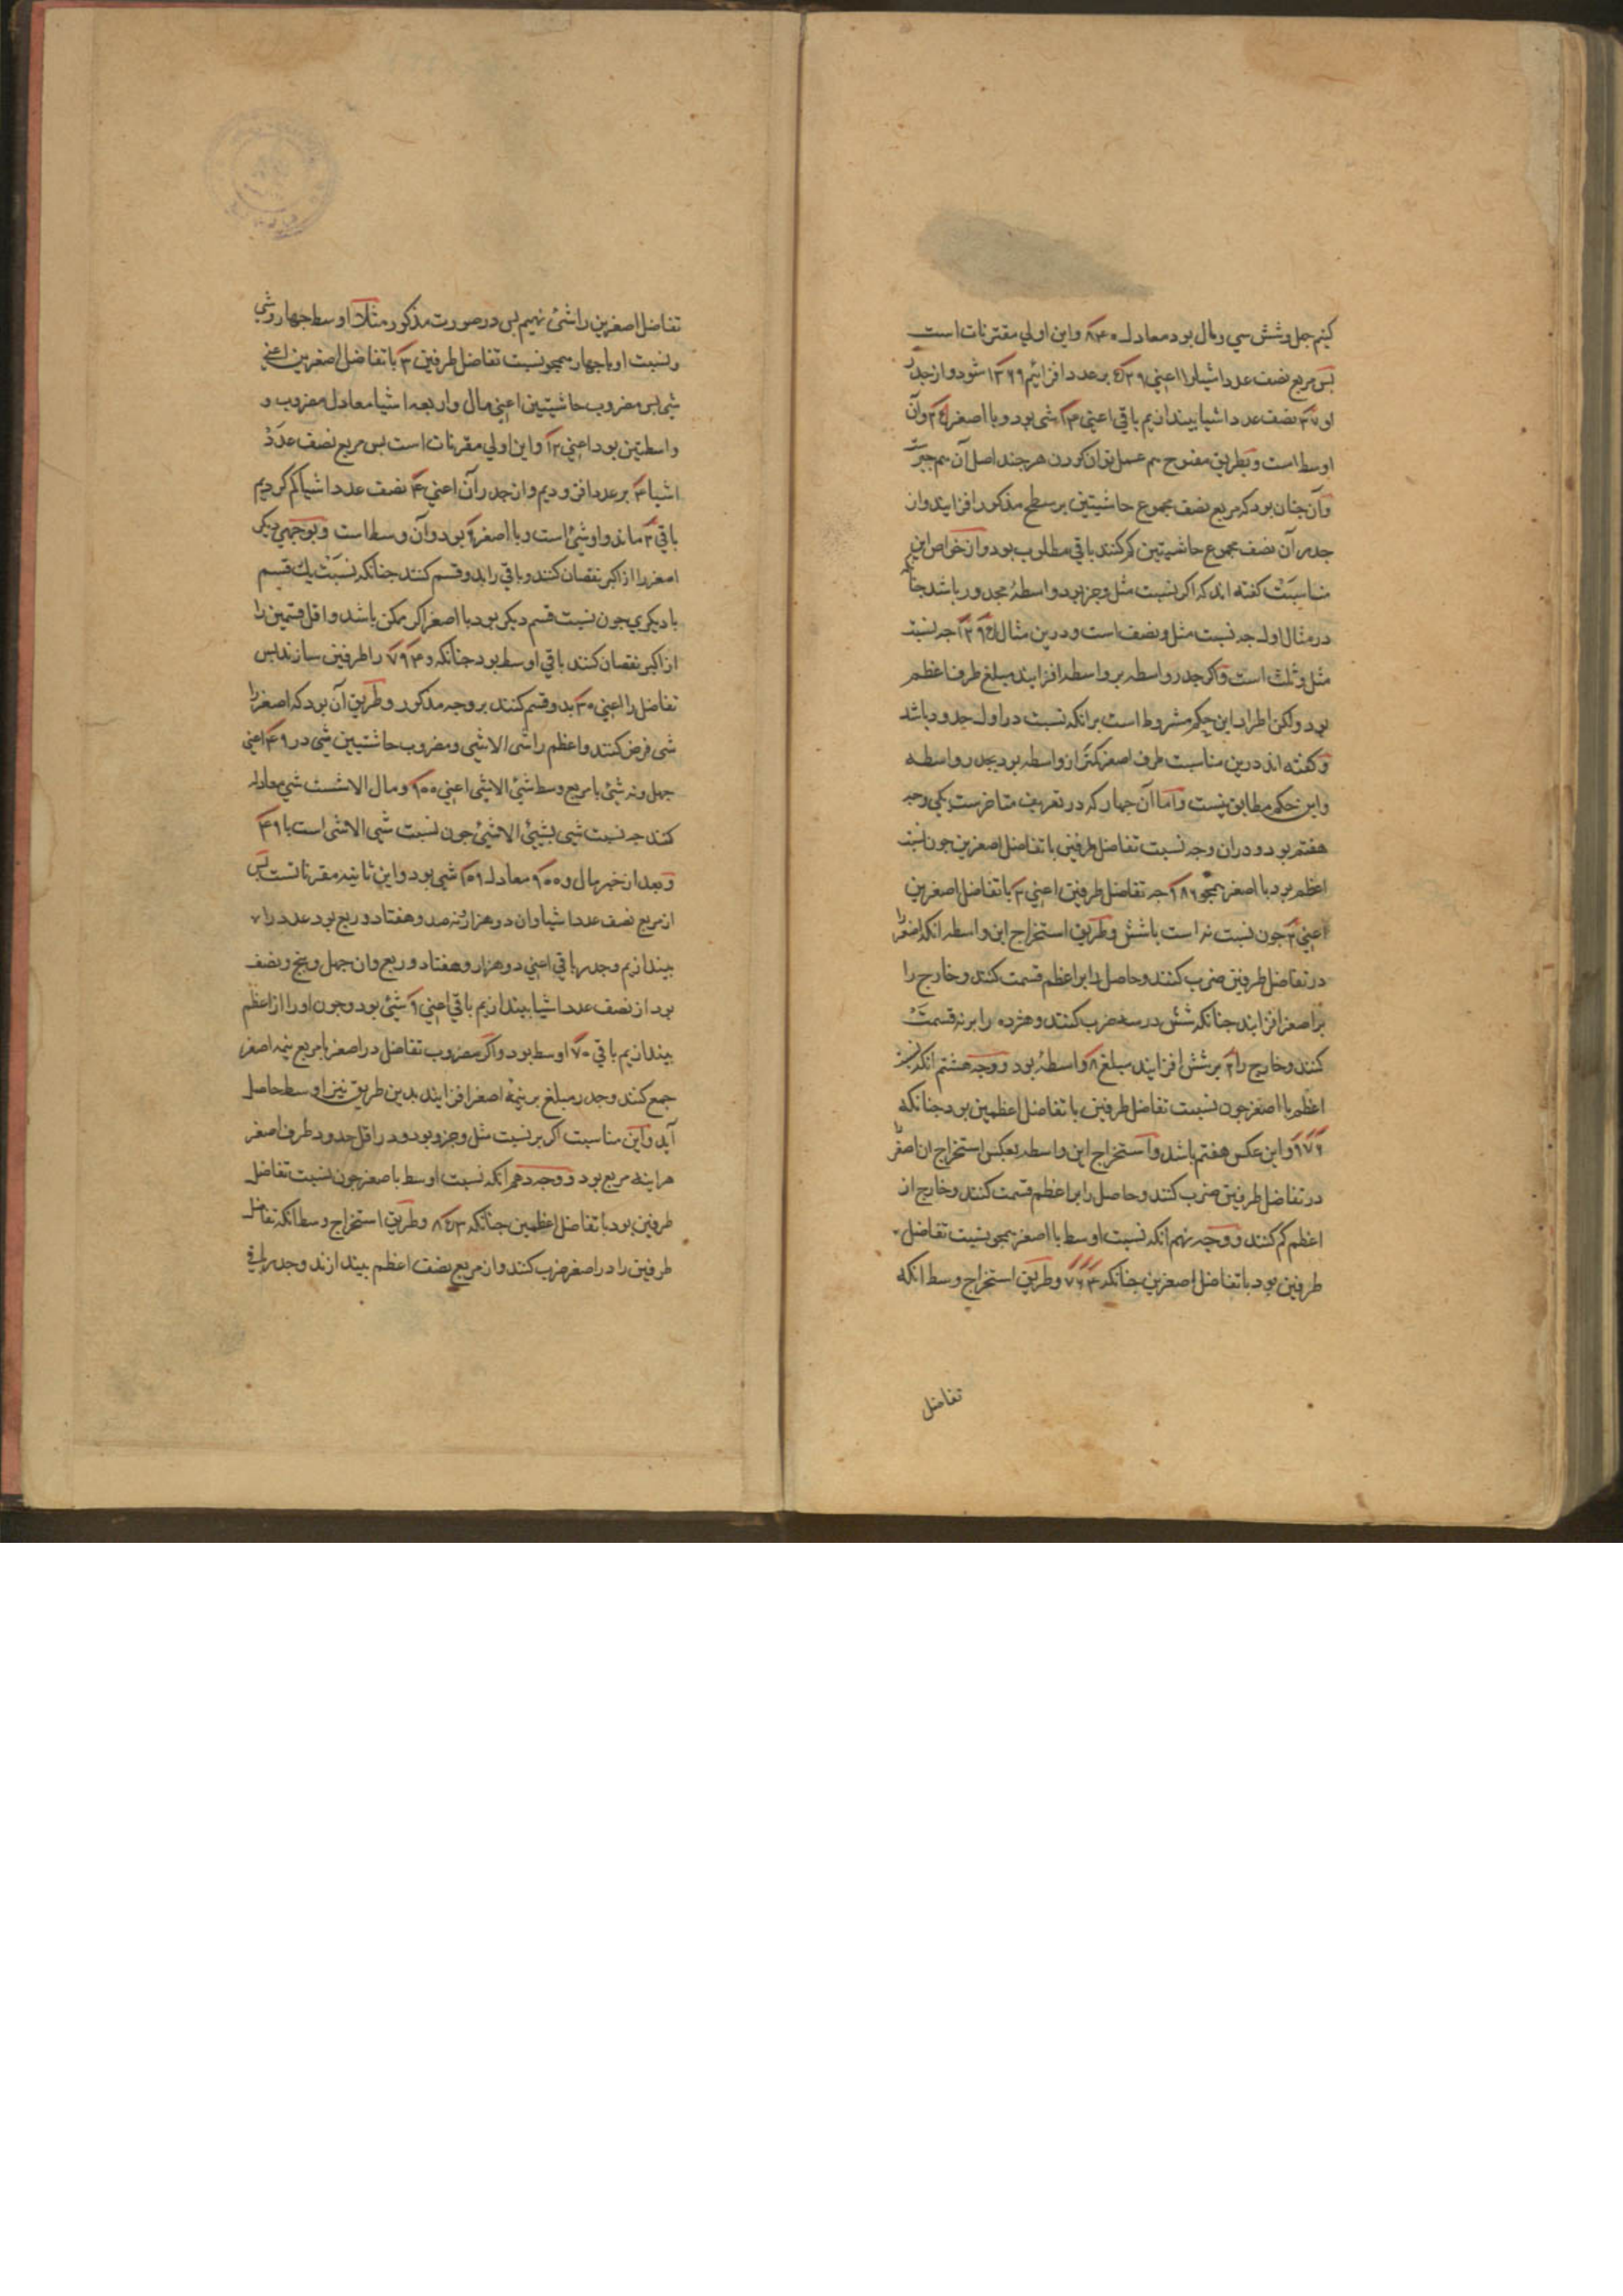 کنیم چهل و شش شی و مال بود معادل ۸۴۰ و این اولی مقترنات است
پس مربع نصف عدد اشیا را اعنی ۵۲۹ بر عدد افزائیم ۱۳۶۹ شود و از جذر
او ۳۷ نصف عدد اشیا بیندازیم باقی اعنی ۱۴ شی بود و با اصغر ۲۴ و آن
اوسط است و بطریق مفتوح هم عمل توان کردن هر چند اصل آن هم جبرست
و آن چنان بود که مربع نصف مجموع حاشیتین بر سطح مذکور افزایند و از
جذر آن نصف مجموع حاشیتین کم کنند باقی مطلوب بود و از خواص این
مناسبت گفته اند که اگر نسبت مثل و جزء بود واسطه مجذور باشد چنانکه
در مثال اول چه نسبت مثل و نصف است و درین مثال چه نسبت
مثل و ثلث است و اگر جذر واسطه بر واسطه افزایند مبلغ طرف اعظم
بود ولکن اطراد این حکم مشروط است برانکه نسبت در اول حدود باشد
و گفته اند درین مناسبت طرف اصغر کمتر از واسطه بود بجذر واسطه
و این حکم مطابق نیست و اما آن چهار که در تعریف متاخرست یکی وجه
هفتم بود و در آن وجه نسبت تفاضل طرفین با تفاضل اصغرین چون نسبت
اعظم بود با اصغر همچو ۹ ۸ ۶ چه تفاضل طرفین اعنی ۳ با تفاضل اصغرین
اعنی ۲ چون نسبت نه است با شش و طریق استخراج این واسطه انکه اصغر را
در تفاضل طرفین ضرب کنند و حاصل را بر اعظم قسمت کنند و خارج را
بر اصغر افزایند چنانکه شش در سه ضرب کنند و هژده را بر نه قسمت
کنند و خارج را ۲ بر شش افزایند مبلغ ۸ واسطه بود و وجه هشتم انکه نسبت
اعظم با اصغر چون نسبت تفاضل طرفین با تفاضل اعظمین بود چنانکه
۶ ۷ ۹ و این عکس هفتم باشد و استخراج این واسطه بعکس استخراج ان اصغر
در تفاضل طرفین ضرب کنند و حاصل را بر اعظم قسمت کنند و خارج از
اعظم کم کنند و وجه نهم انکه نسبت اوسط با اصغر همچو نسبت تفاضل
طرفین بود با تفاضل اصغرین چنانکه ۴ ۶ ۷ و طریق استخراج وسط انکه
تفاضل
تفاضل اصغرین را شئ نهیم پس در صورت مذکور مثلا اوسط چهار و شی
و نسبت او با چهار همچو نسبت تفاضل طرفین ۳ با تفاضل اصغرین اعنی
شی پس مضروب حاشیتین اعنی مال و اربعه اشیا معادل مضروب و
واسطتین بود اعنی ۱۲ و این اولی مقرنات است پس مربع نصف عدد
اشیا ۴ بر عدد افزودیم و از جذر آن اعنی ۴ نصف عدد اشیا کم کردیم
باقی ۲ ماند و او شئ است و با اصغر ۶ بود و آن وسط است و بوجهی دیگر
اصغر را از اکبر نقصان کنند و باقی را بدو قسم کنند چنانکه نسبت یک قسم
با دیگری چون نسبت قسم دیگر بود با اصغر اگر ممکن باشد و اقل قسمین را
از اکبر نقصان کنند باقی اوسط بود چنانکه ۴۹ و ۷۹ را طرفین سازند پس
تفاضل را اعنی ۳۰ بدو قسم کنند بر وجه مذکور و طریق آن بود که اصغر را
شی فرض کنند و اعظم را شی الا شی و مضروب حاشیتین شی در ۴۹ اعنی
چهل و نه شئ با مربع وسط شئ الا شئ اعنی ۹۰۰ و مال الا شست شی معادله
کنند چه نسبت شی بشئ الا شئ چون نسبت شی الا شی است با ۴۹
و بعد از جبر مال و ۹۰۰ معادل ۱۰۹ شی بود و این ثانیه مقرناتست پس
از مربع نصف عدد اشیا و ان دو هزار و نه صد و هفتاد و ربع بود عدد را
بیندازیم و جذر باقی اعنی دو هزار و هفتاد و ربع و ان چهل و پنج و نصف
بود از نصف عدد اشیا بیندازیم باقی اعنی ۹ شئ بود و چون او را از اعظم
بیندازیم باقی ۷۰ اوسط بود و اگر مضروب تفاضل در اصغر با مربع نیمه اصغر
جمع کنند و جذر مبلغ بر نیمه اصغر افزایند بدین طریق نیز اوسط حاصل
آید و این مناسبت اگر بر نسبت مثل و جزو بود و در اقل حدود طرف اصغر
هراینه مربع بود و وجه دهم انکه نسبت اوسط با اصغر چون نسبت تفاضل
طرفین بود با تفاضل اعظمین چنانکه و طریق استخراج وسط انکه تفاضل
طرفین را در اصغر ضرب کنند و از مربع نصف اعظم بیندازند و جذر باقی